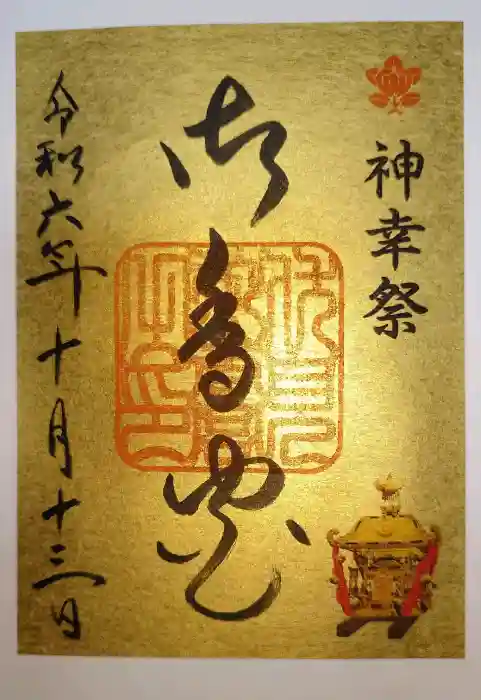 神幸祭
御香宮
令和六年十月十三日